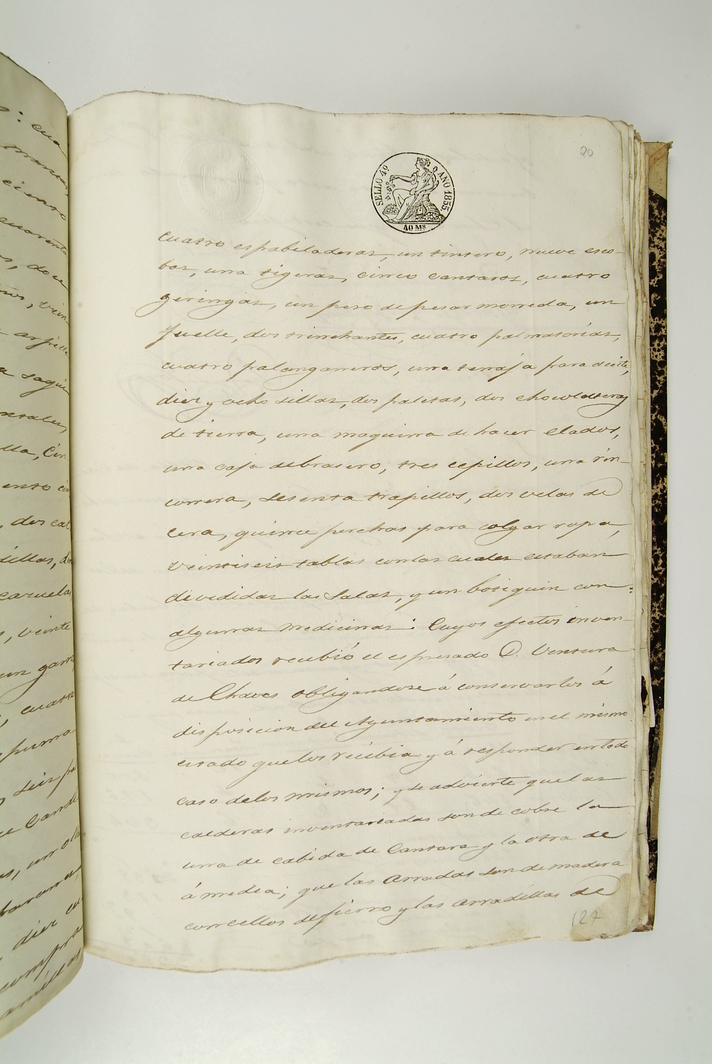 20
SELLO 4º AÑO 1855.
40 Ms
cuatro espabiladeras, un tintero, nueve esco-
bas, una tigeras, cinco cantaros, cuatro
geringas, un peso de pesar moneda, un
fuelle, dos trinchantes, cuatro palmatorias,
cuatro palanganeros, una tenaja para aceite,
diez y ocho sillas, dos paletas, dos chocolateras
de tierra, una maquina de hacer elados,
una caja de brasero, tres cepillos, una rin-
conera, sesenta trapillos, dos velas de
cera, quince perchas para colgar ropa,
veintiseis tablas con las cuales estaban
divididas las salas, y un botiquin con
algunas medicinas: Cuyos efectos inven-
tariados recibió el espresado D. Ventura
de Chaves obligandose á conservarlos á
disposicion del Ayuntamiento en el mismo
estado que los recibia y á responder en todo
caso de los mismos; y se advierte que las
calderas inventariadas son de cobre la
una de cabida de Cantara y la otra de
á media; que las Arradas son de madera
con cellos de fierro y las arradillas de
127